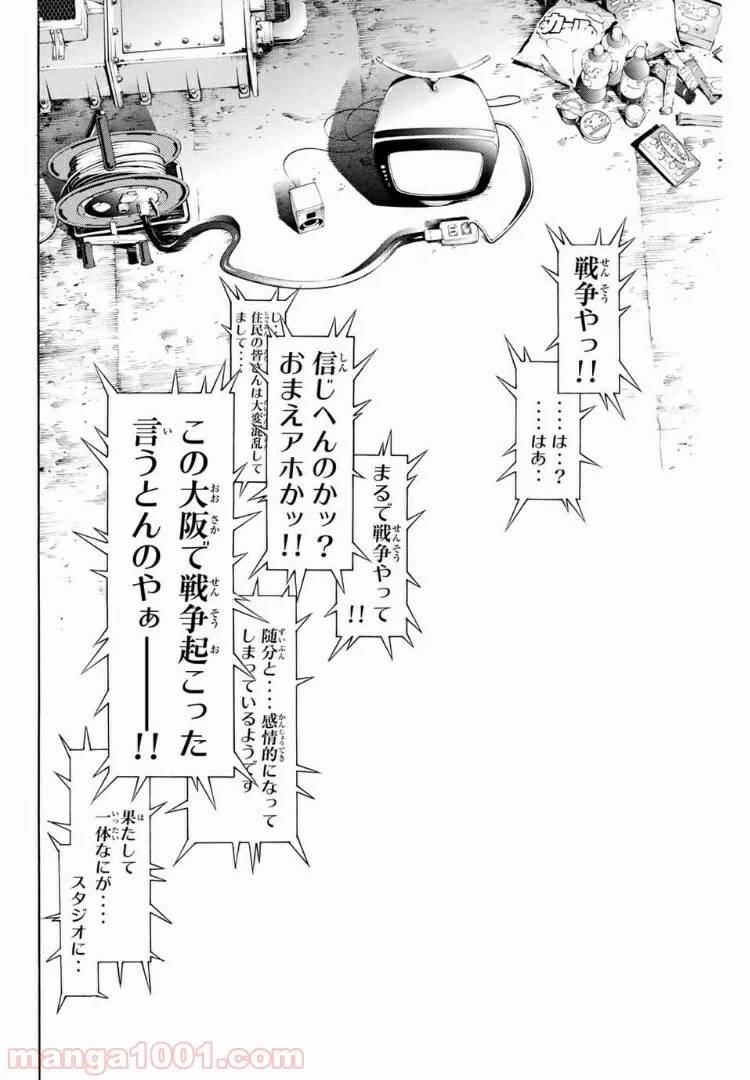 戦争やっ!!
‥‥は‥?
‥‥はぁ‥
まるで戦争やって
!!
信じへんのかッ?
おまえアホかッ!!
し‥
住民の皆さんは大変混乱して
まして‥‥
随分と‥‥感情的になって
しまっているようです
この大阪で戦争起こった
言うとんのやぁ――!!
果たして
一体なにが‥‥
スタジオに‥
カール
manga1001.com